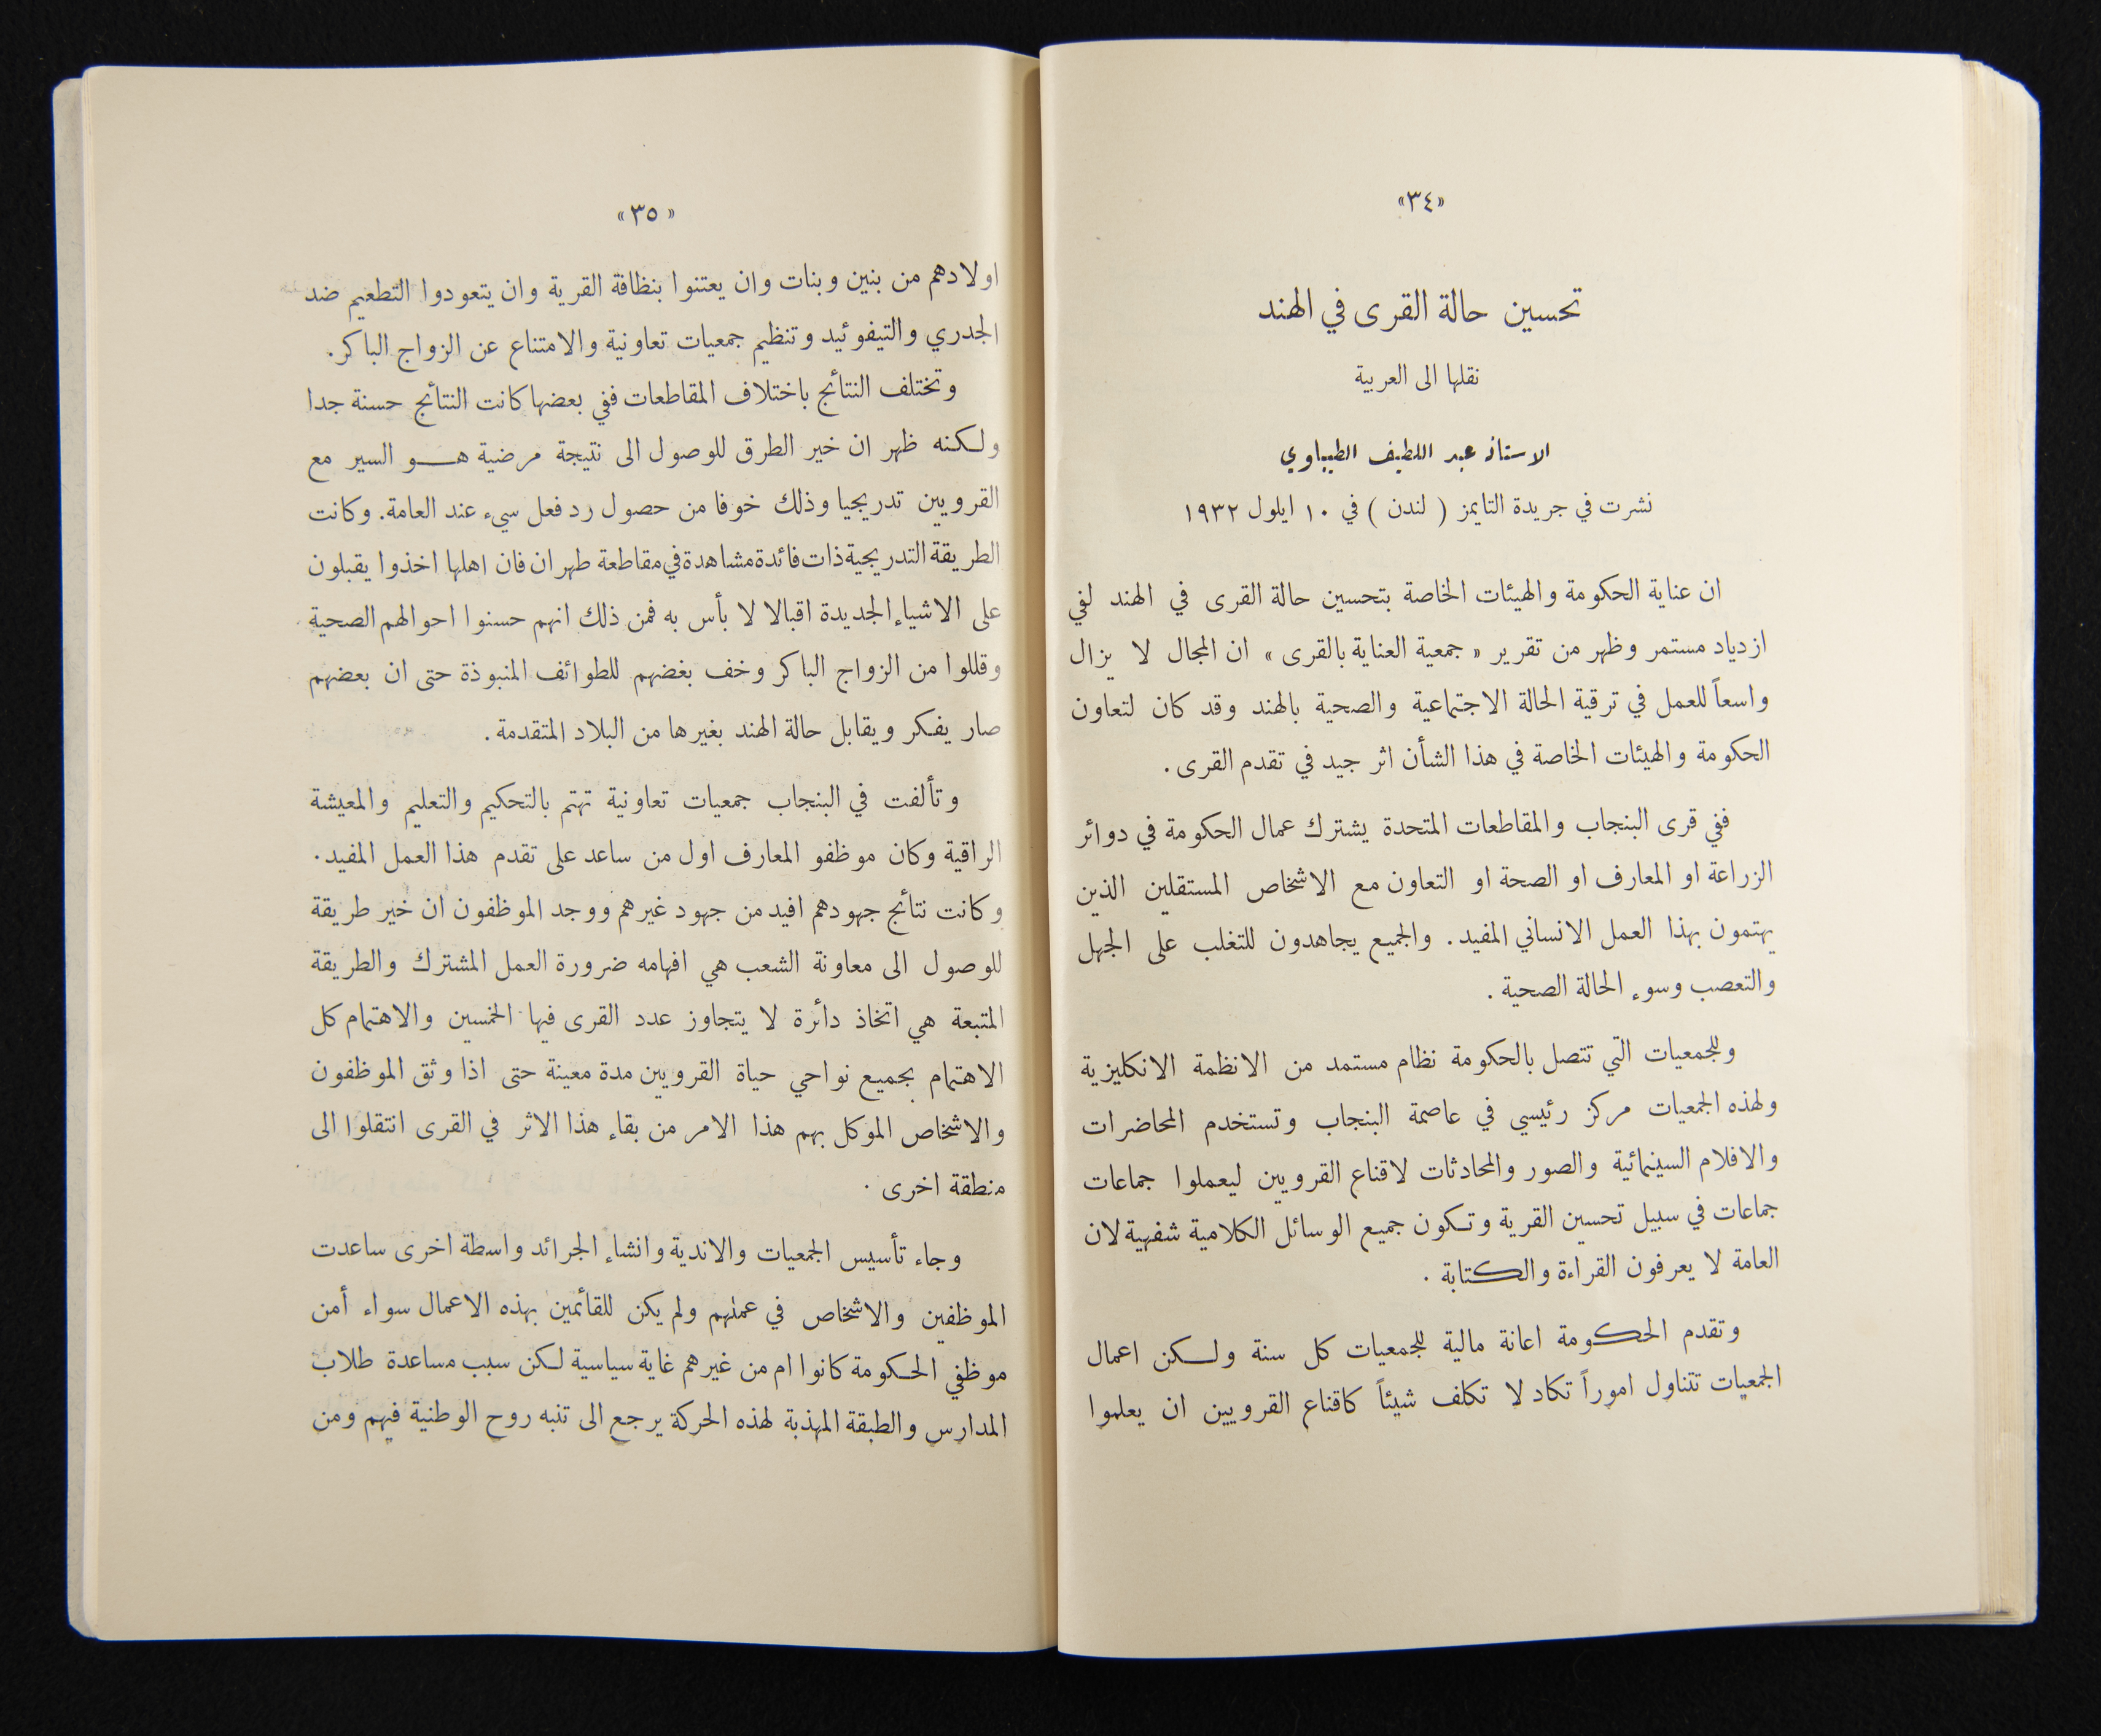 «٣٤»
تحسين حالة القرى في الهند
نقلها الى العربية
الاستاذ عبد اللطيف الطيباوي
نشرت في جريدة التايمز ( لندن ) في ١٠ ايلول ١٩٣٢
ان عناية الحكومة والهيئات الخاصة بتحسين حالة القرى في الهند لفي
ازدياد مستمر وظهر من تقرير « جمعية العناية بالقرى » ان المجال لا يزال
واسعاً للعمل في ترقية الحالة الاجتماعية والصحية بالهند وقد كان لتعاون
الحكومة والهيئات الخاصة في هذا الشأن اثر جيد في تقدم القرى .
ففي قرى البنجاب والمقاطعات المتحدة يشترك عمال الحكومة في دوائر
الزراعة او المعارف او الصحة او التعاون مع الاشخاص المستقلين الذين
يهتمون بهذا العمل الانساني المفيد . والجميع يجاهدون للتغلب على الجهل
والتعصب وسوء الحالة الصحية .
وللجمعيات التي تتصل بالحكومة نظام مستمد من الانظمة الانكليزية
ولهذه الجمعيات مركز رئيسي في عاصمة البنجاب وتستخدم المحاضرات
والافلام السينمائية والصور والمحادثات لاقناع القرويين ليعملوا جماعات
جماعات في سبيل تحسين القرية وتكون جميع الوسائل الكلامية شفهية لان
العامة لا يعرفون القراءة والكتابة .
وتقدم الحكومة اعانة مالية للجمعيات كل سنة ولكن اعمال
الجمعيات تتناول اموراً تكاد لا تكلف شيئاً كاقناع القرويين ان يعلموا
«٣٥»
اولادهم من بنين وبنات وان يعتنوا بنظافة القرية وان يتعودوا التطعيم ضد
الجدري والتيفوئيد وتنظيم جمعيات تعاونية والامتناع عن الزواج الباكر .
وتختلف النتائج باختلاف المقاطعات ففي بعضها كانت النتائج حسنة جدا
ولكنه ظهر ان خير الطرق للوصول الى نتيجة مرضية هو السير مع
القرويين تدريجيا وذلك خوفا من حصول رد فعل سيء عند العامة . وكانت
الطريقة التدريجية ذات فائدة مشاهدة في مقاطعة طهران فان اهلها اخذوا يقبلون
على الاشياء الجديدة اقبالا لا بأس به فمن ذلك انهم حسنوا احوالهم الصحية
وقللوا من الزواج الباكر وخف بغضهم للطوائف المنبوذة حتى ان بعضهم
صار يفكر ويقابل حالة الهند بغيرها من البلاد المتقدمة .
وتألفت في البنجاب جمعيات تعاونية تهتم بالتحكيم والتعليم والمعيشة
الراقية وكان موظفو المعارف اول من ساعد على تقدم هذا العمل المفيد .
وكانت نتائج جهودهم افيد من جهود غيرهم ووجد الموظفون ان خير طريقة
للوصول الى معاونة الشعب هي افهامه ضرورة العمل المشترك والطريقة
المتبعة هي اتخاذ دائرة لا يتجاوز عدد القرى فيها الخمسين والاهتمام كل
الاهتمام بجميع نواحي حياة القرويين مدة معينة حتى اذا وثق الموظفون
والاشخاص الموكل بهم هذا الامر من بقاء هذا الاثر في القرى انتقلوا الى
منطقة اخرى .
وجاء تأسيس الجمعيات والاندية وانشاء الجرائد واسطة اخرى ساعدت
الموظفين والاشخاص في عملهم ولم يكن للقائمين بهذه الاعمال سواء أمن
موظفي الحكومة كانوا ام من غيرهم غاية سياسية لكن سبب مساعدة طلاب
المدارس والطبقة المهذبة لهذه الحركة يرجع الى تنبه روح الوطنية فيهم ومن